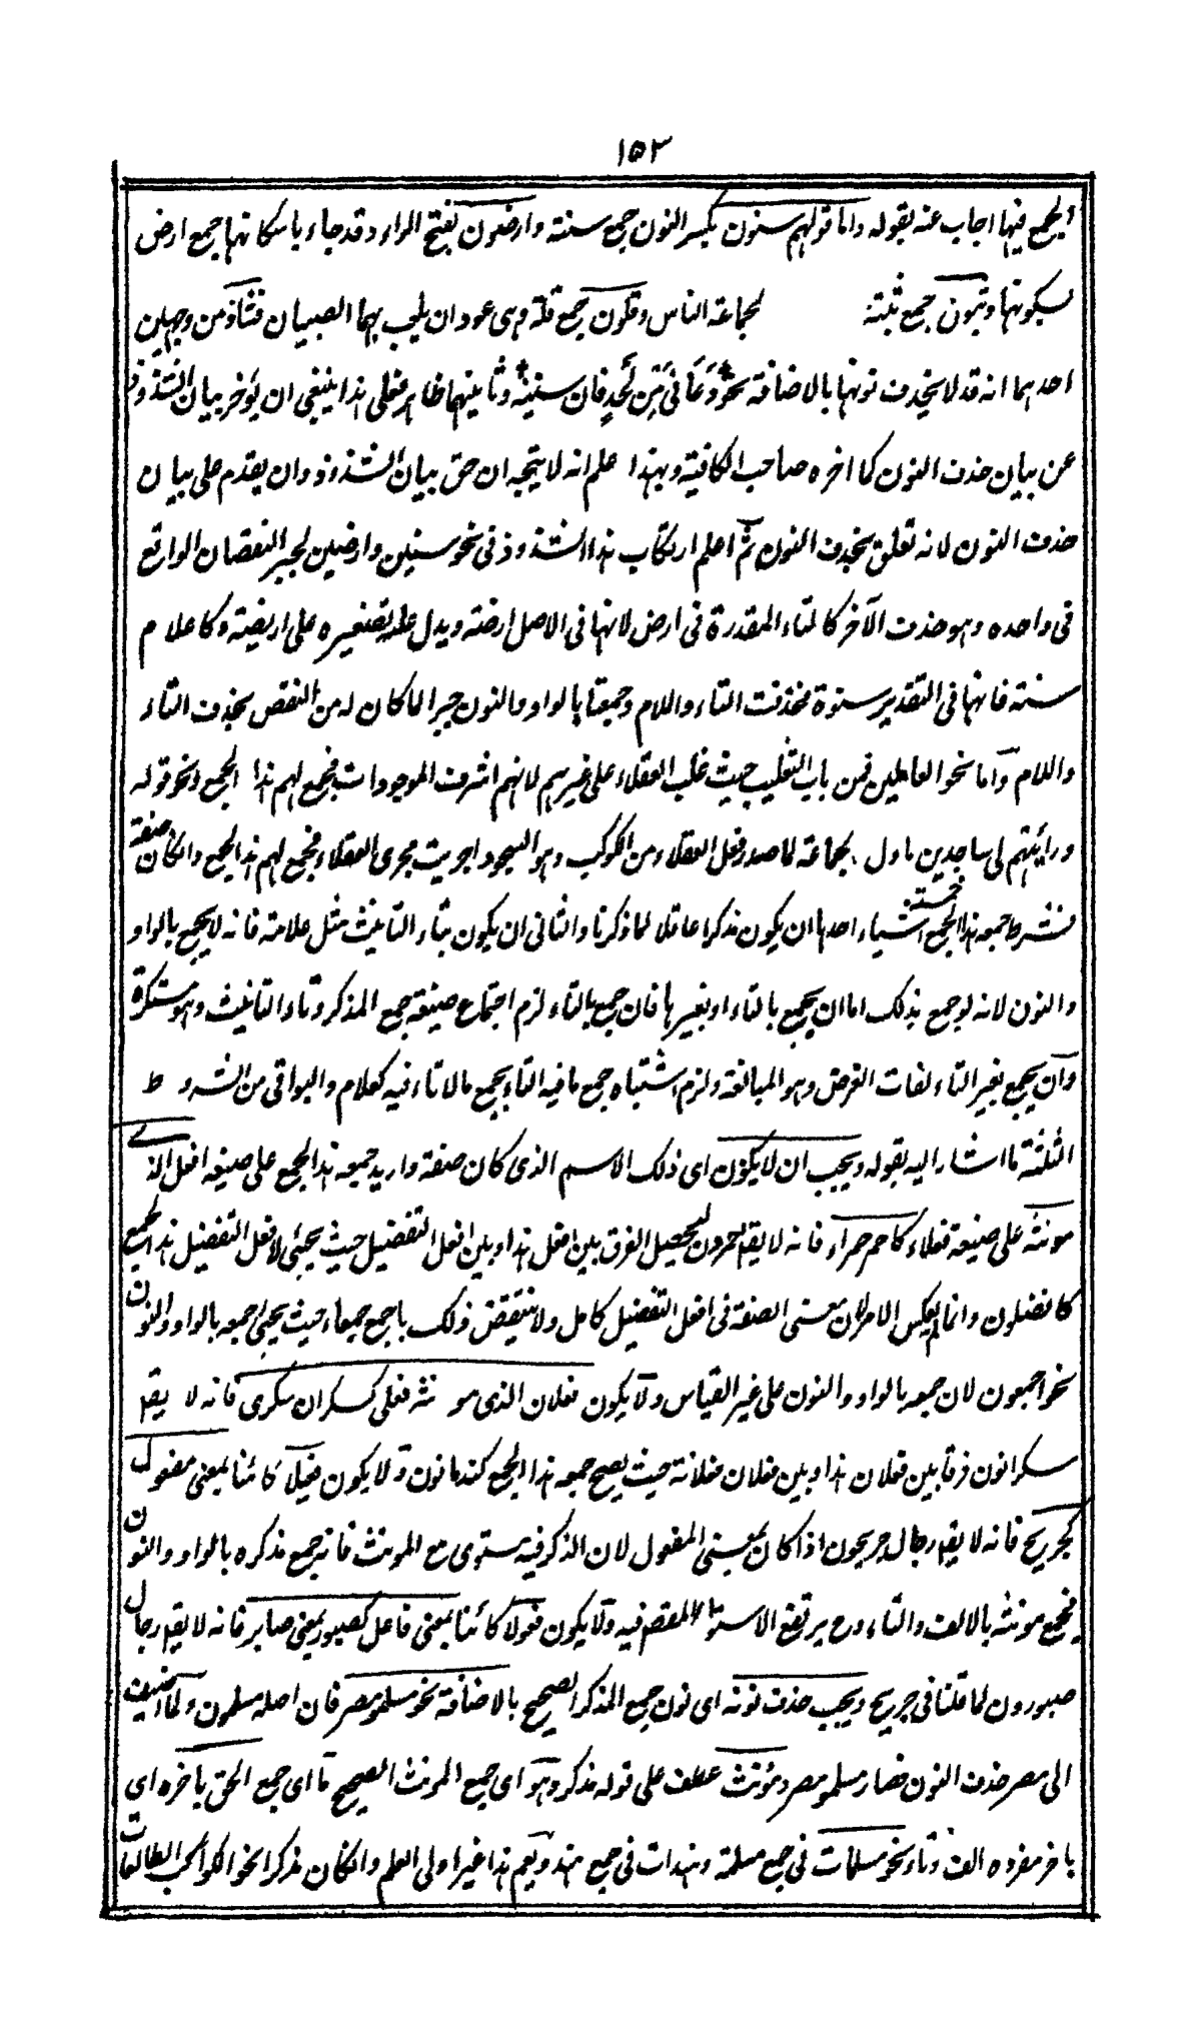 ١٥٣
الجمع فيها اجاب عنه بقوله واما قولهم سنون بكسر النون جمع سنة وارضون بفتح الراء وقد جاء باسكانها جمع ارض
بسكونها وثبون جمع ثبة لجماعة الناس وقلون جمع قلة وهى عودان يلعب بهما الصبيان فشاذ من وجهين
احدهما انه قد لا يحذف نونها بالاضافة نحو دَعَانى مِن نَجدٍ فان سنينه وثانيهما ظاهر فعلى هذا ينبغى ان يؤخر بيان الشذوذ
عن بيان حذف النون كما اخره صاحب الكافية وبهذا علم انه لا يتجه ان حق بيان الشذوذ وان يقدم على بيان
حذف النون لانه تعلق بحذف النون ثم اعلم ارتكاب هذا الشذوذ فى نحو سنين وارضين لجبر النقصان الواقع
فى واحده وهو حذف الآخر كالتاء المقدرة فى ارض لانها فى الاصل ارضة ويدل عليه تصغيره على اريضة وكاعلام
سنة فانها فى التقدير سنوة فحذفت التاء واللام وجمعتا بالواو والنون جبرا لما كان له من النقص بحذف التاء
واللام واما نحو العالمين فمن باب التغليب حيث غلب العقلاء على غيرهم لانهم اشرف الموجودات فجمع لهم هذا الجمع ونحو قوله
ورأيتهم لى ساجدين ماول بجماعة لما صدر فعل العقلاء من الكوكب وهو السجود اجريت مجرى العقلاء فجمع لهم هذا الجمع وان كان صفة
فشرط جمعه هذا الجمع خمسة اشياء احدها ان يكون مذكرا عاقلا لما ذكرنا والثانى ان يكون بتاء التانيث مثل علامة فانه لا يجمع بالواو
والنون لانه لو جمع بذلك اما ان يجمع بالتاء او بغيرها فان جمع بالتاء لزم اجتماع صيغة جمع المذكر وتاء التانيث وهو مستكرة
وان يجمع بغير التاء لفات الغرض وهو المبالغة ولزم اشتباه جمع ما فيه التاء بجمع ما لا تاء فيه كعلام والبواقى من الشروط
الثلثة ما اشار اليه بقوله ويجب ان لا يكون اى ذلك الاسم الذى كان صفة واريد جمعه هذا الجمع على صيغة افعل الذى
مونثه على صيغة فعلاء كاحمر حمراء فانه لا يقم احمرون ليحصل الفرق بين افعل هذا وبين افعل التفضيل حيث يجئى لافعل التفضيل هذا الجمع
كافضلون وانما لم يعكس الامر لان معنى الصفة فى افعل التفضيل كامل ولا ينتقض ذلك باجمع جمعاء حيث يجئ جمعه بالواو والنون
نحو اجمعون لان جمعه بالواو والنون على غير القياس ولا يكون فعلان الذى مونثه فعلى كسكران سكرى فانه لا يقم
سكرانون فرقا بين فعلان هذا وبين فعلان فعلانة حيث يصح جمعه هذا الجمع كندمانون ولا يكون فعيلا كائنا بمعنى مفعول
كجريح فانه لا يقم رجال جريحون اذا كان بمعنى المفعول لان المذكر فيه مستوى مع المونث فانه جمع مذكره بالواو والنون
فجمع مونثه بالالف والتاء وح يرتفع الاستواء المقصم فيه ولا يكون فعولا كائنا بمعنى فاعل كصبور بمعنى صابر فانه لا يقم رجال
صبورون لما قلنا فى جريح ويجب حذف نونه اى نون جمع المذكر الصحيح بالاضافة نحو مسلمو مصر فان اصله مسلمون ولما اضيف
الى مصر حذف النون فصار مسلمو مصر ومؤنث عطف على قوله مذكر وهو اى جمع المونث الصحيح ما اى جمع الحق باخره اى
باخر مفرده الف وتاء نحو مسلمات فى جمع مسلمة وهندات فى جمع هند ويعم هذا غير اولى العلم وان كان مذكرا نحو الكواكب الطالعات